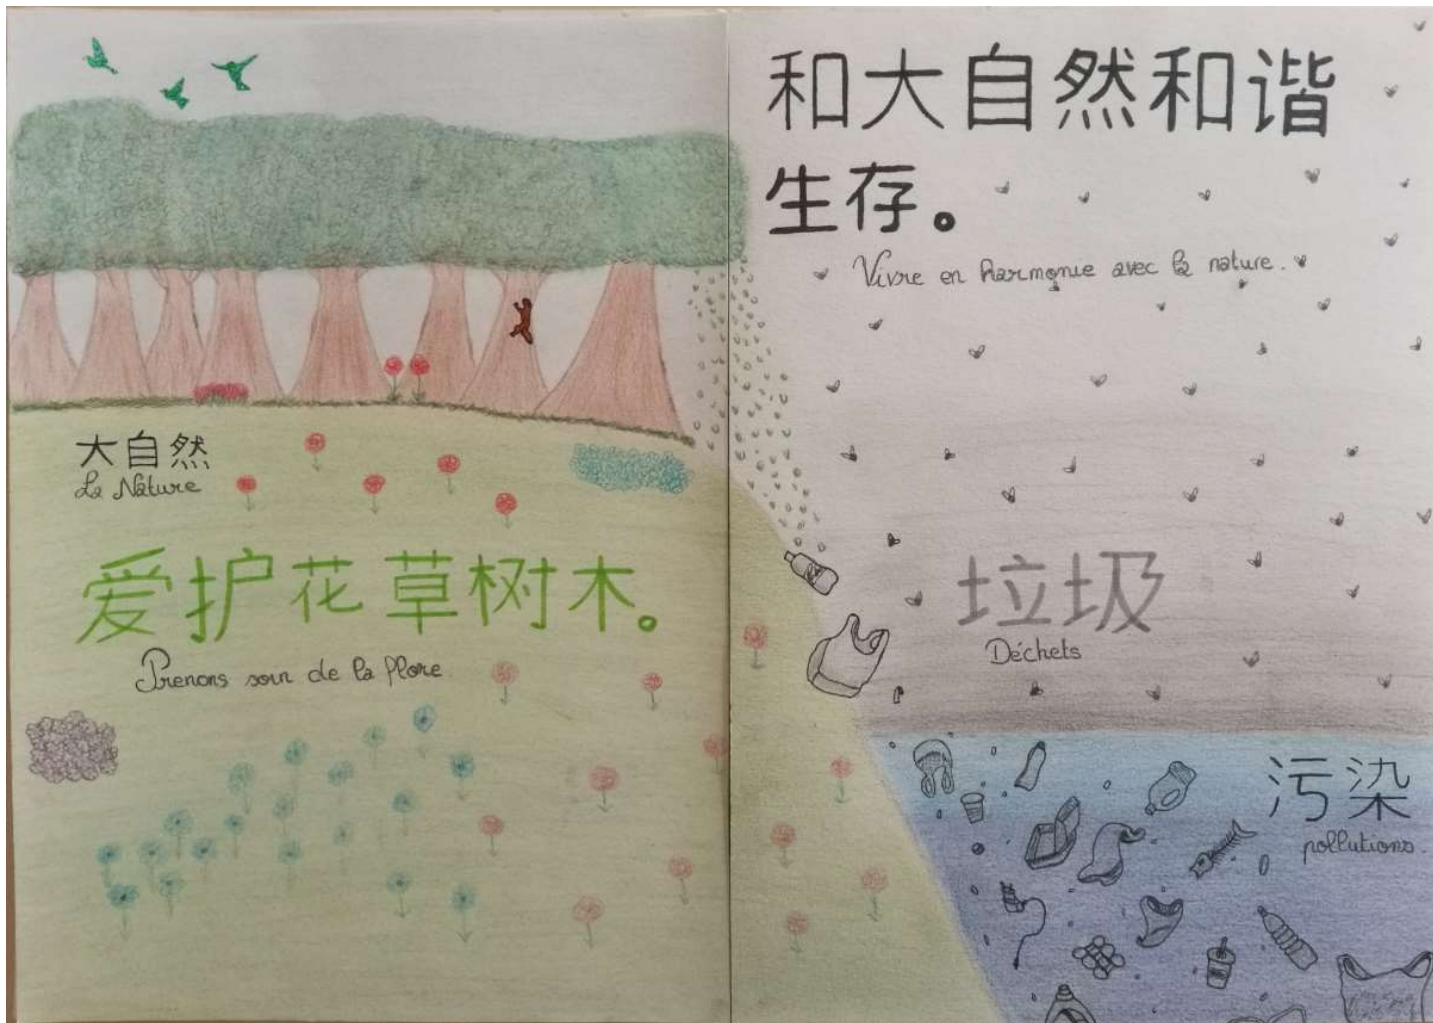 大自然
La Nature
爱护花草树木。
Prenons soin de la flore
和大自然和谐
生存。
Vivre en harmonie avec la nature.
垃圾
Déchets
污染
pollutions.